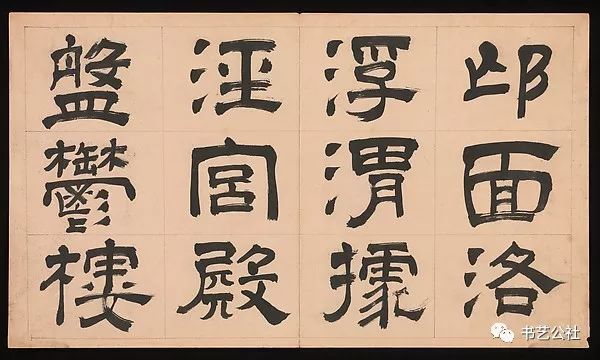 邙面洛
浮渭據
涇宮殿
盤鬱樓
书艺公社